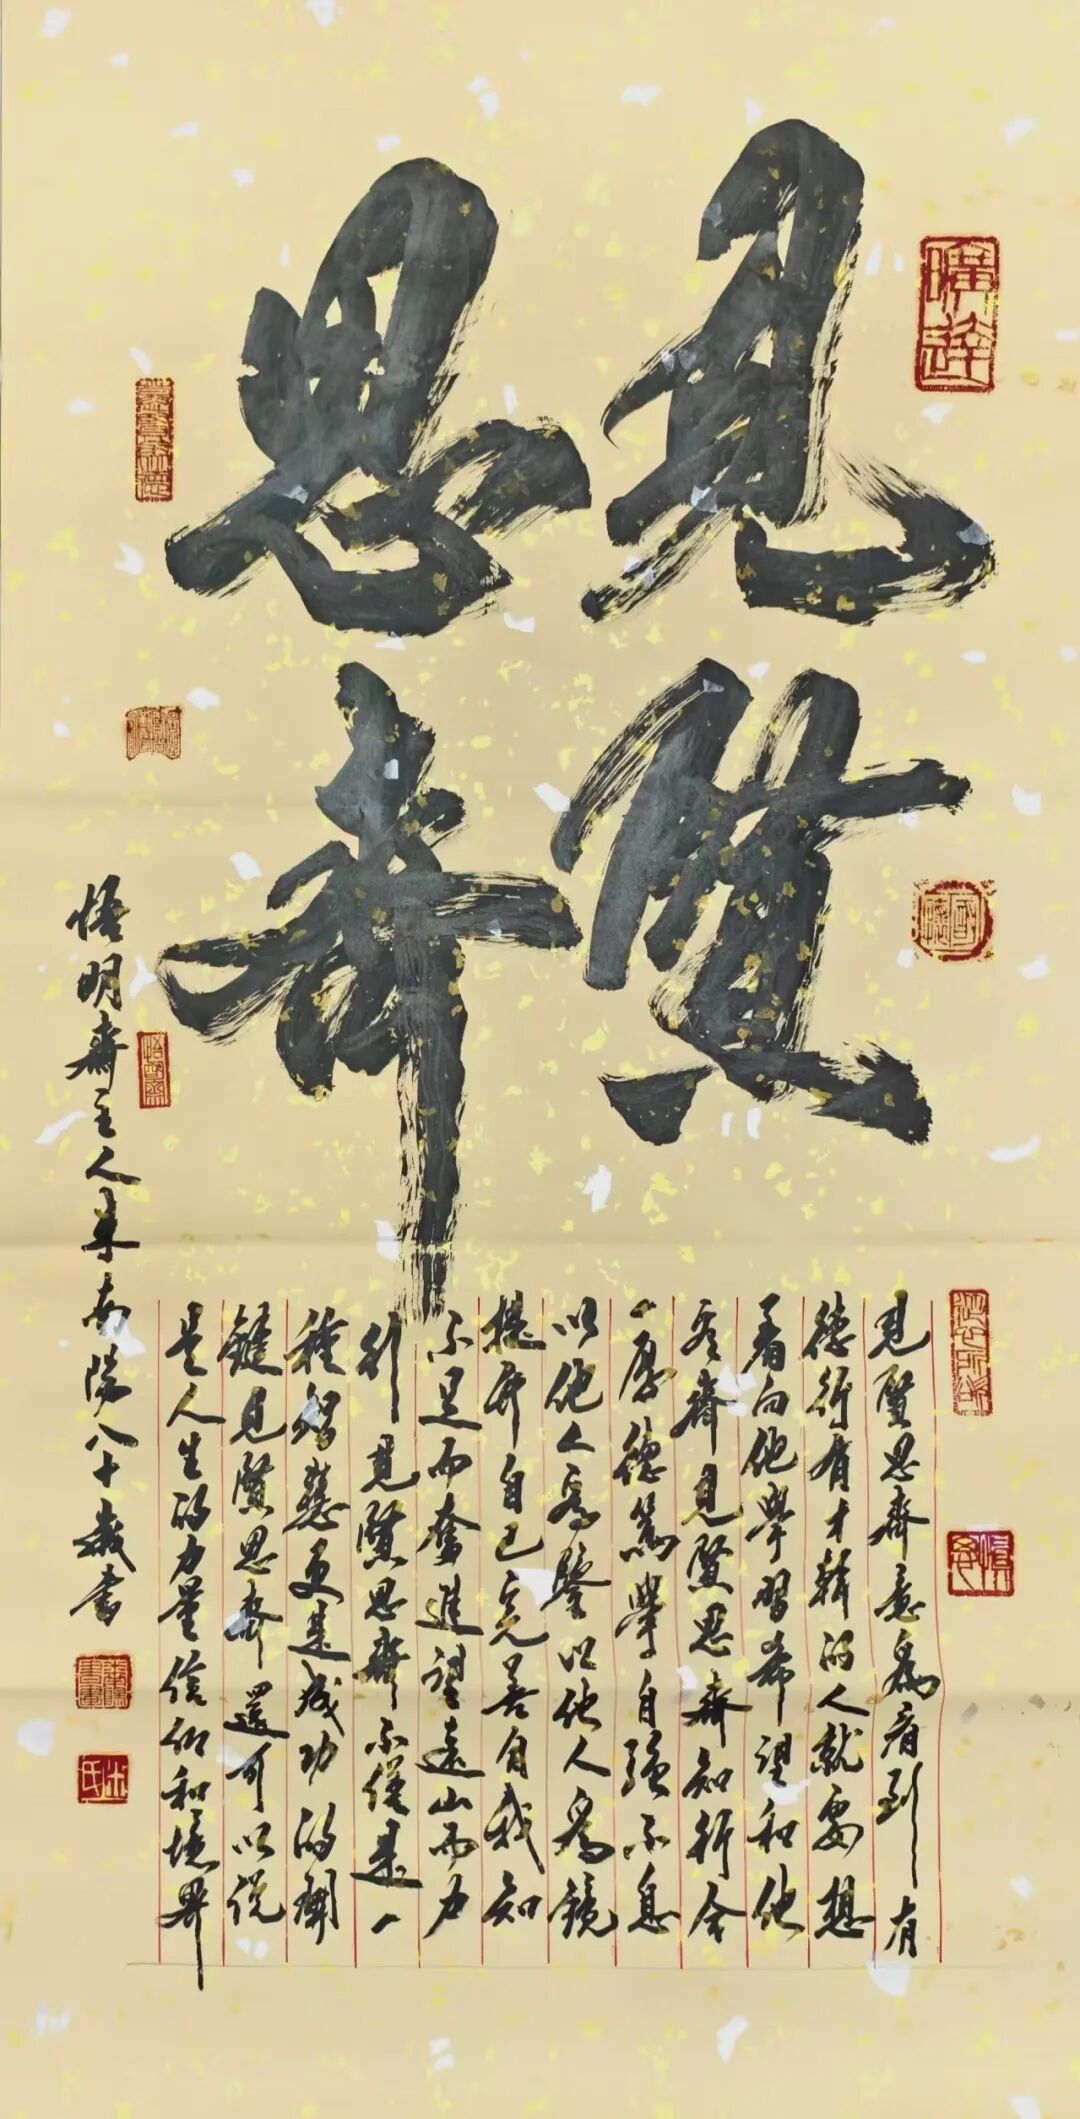 見賢
思齊
見賢思齊意為看到有
德行有才幹的人就要想
着向他學習希望和他
看齊見賢思齊知行合
一厚德篤學自強不息
以他人為鑒以他人為鏡
提升自己完善自我知
不足而奮進望遠山而力
行見賢思齊不僅是一
種智慧更是成功的關
鍵見賢思齊還可以說
是人生的力量信仰和境界
悟明齋主人朱南陽八十歲書
曠達